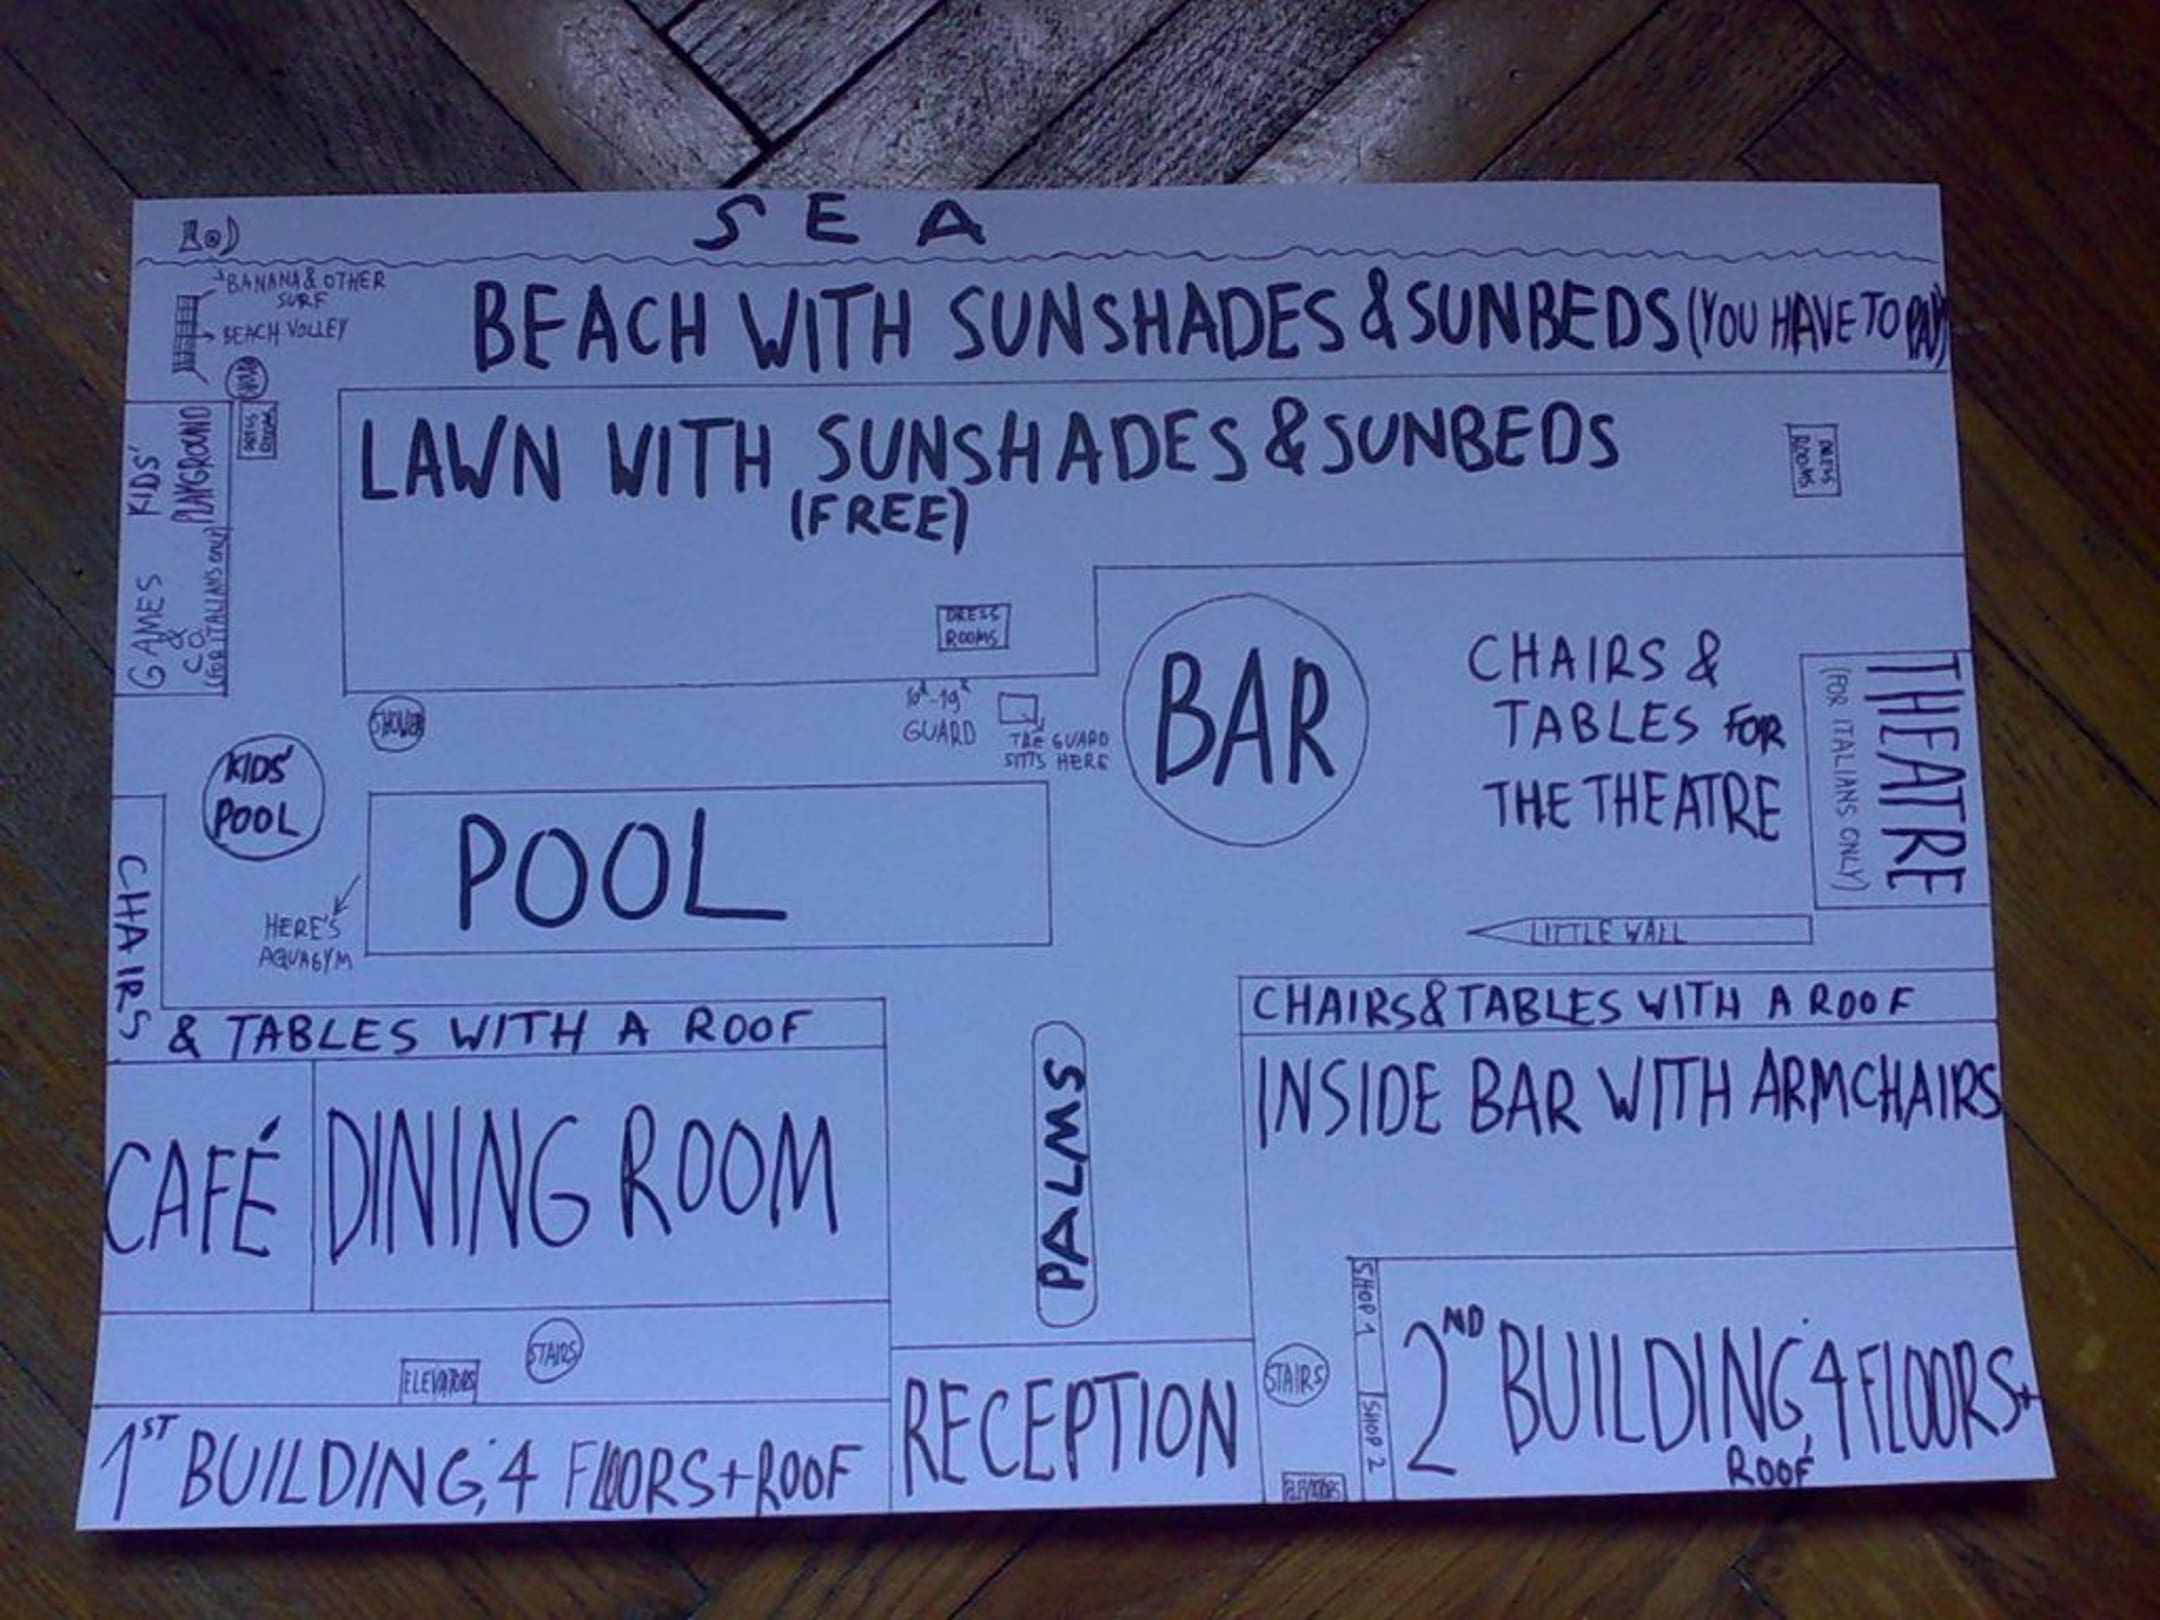 SEA
BANANA & OTHER
SURF
BEACH VOLLEY
BEACH WITH SUNSHADES & SUNBEDS (YOU HAVE TO PAY)
KIDS'
PLAYGROUND
DRESS
ROOMS
GAMES
&
CO.
(FOR ITALIANS ONLY)
LAWN WITH SUNSHADES & SUNBEDS
(FREE)
DRESS
ROOMS
DRESS
ROOMS
SHOWER
GUARD
THE GUARD
SITTS HERE
BAR
CHAIRS &
TABLES FOR
THE THEATRE
THEATRE
(FOR ITALIANS ONLY)
KIDS'
POOL
POOL
HERE'S
AQUAGYM
LITTLE WALL
CHAIRS
& TABLES WITH A ROOF
CHAIRS & TABLES WITH A ROOF
CAFÉ
DINING ROOM
PALMS
INSIDE BAR WITH ARMCHAIRS
STAIRS
ELEVATORS
1ST BUILDING, 4 FLOORS + ROOF
RECEPTION
STAIRS
ELEVATORS
SHOP 1
SHOP 2
2ND BUILDING, 4 FLOORS +
ROOF